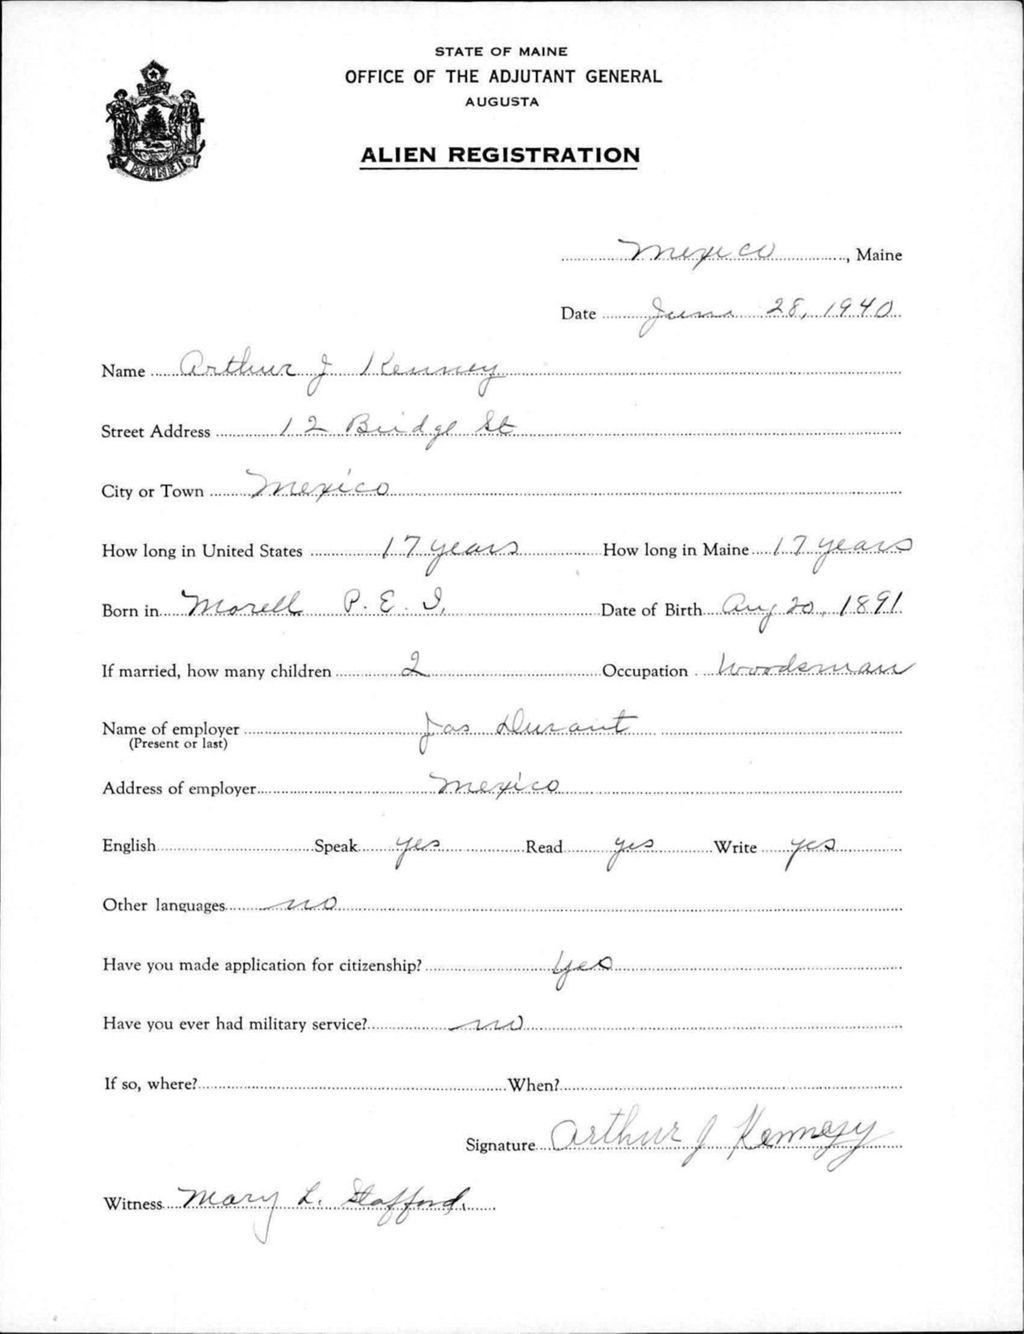 STATE OF MAINE
OFFICE OF THE ADJUTANT GENERAL
AUGUSTA
ALIEN REGISTRATION
MAINE
Mexico, Maine
Date June 28, 1940
Name Arthur J Kenney
Street Address 12 Bridge St
City or Town Mexico
How long in United States 17 years How long in Maine 17 years
Born in Morell P. E. I. Date of Birth Aug 20, 1891
If married, how many children 2 Occupation Woodsman
Name of employer Jas Durant
(Present or last)
Address of employer Mexico
English Speak yes Read yes Write yes
Other languages no
Have you made application for citizenship? Yes
Have you ever had military service? no
If so, where? When?
Signature Arthur J
Witness Mary L. Stafford.